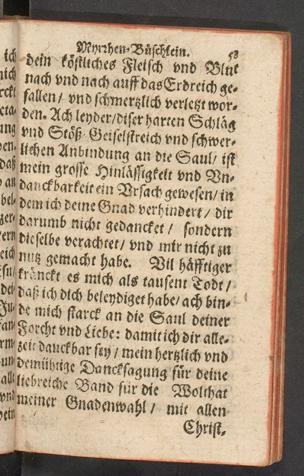 Myrrhen-Büschlein. 58
dein köstliches Fleisch vnd Blut
nach vnd nach auff das Erdreich ge-
fallen/ vnd schmertzlich verletzt wor-
den. Ach leyder/ diser harten Schläg
vnd Stöß/ Geiselstreich vnd schwer-
lichen Anbindung an die Saul/ ist
mein grosse Hinlässigkeit vnd Vn-
danckbarkeit ein Vrsach gewesen/ in
dem ich deine Gnad verhindert/ dir
darumb nicht gedancket/ sondern
dieselbe verachtet/ vnd mir nicht zu
nutz gemacht habe. Vil häfftiger
kränckt es mich als tausent Todt/
daß ich dich beleydiget habe/ ach bin-
de mich starck an die Saul deiner
Forcht vnd Liebe: damit ich dir alle-
zeit danckbar sey/ mein hertzlich vnd
demühtige Dancksagung für deine
liebreiche Band für die Wolthat
meiner Gnadenwahl/ mit allen
Christ.